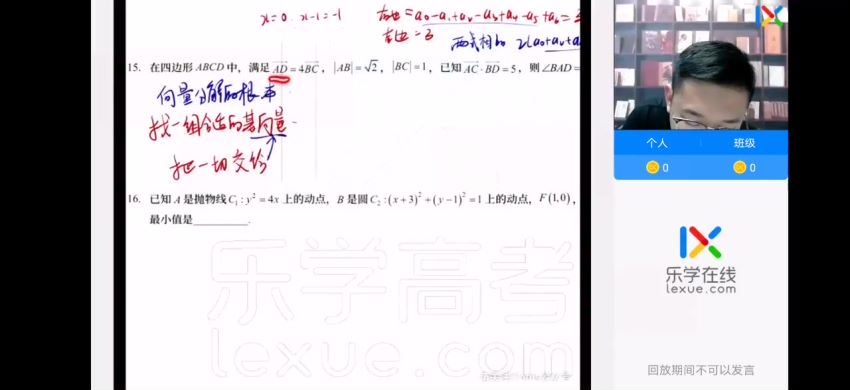 x=0. x-1=-1
右边=a₀-a₁+a₂-a₃+a₄-a₅+a₆=
左边=3
两式相加 2(a₀+a₂+a
15. 在四边形ABCD中，满足 AD=4BC，|AB|=√2，|BC|=1，已知 AC·BD=5，则∠BAD=
向量分解的根本
找一组合适的基向量
把一切交给
16. 已知A是抛物线C₁:y²=4x上的动点，B是圆C₂:(x+3)²+(y-1)²=1上的动点，F(1,0)，
最小值是________.
乐学高考
lexue.com
个人 班级
0 0
乐学在线
lexue.com
回放期间不可以发言